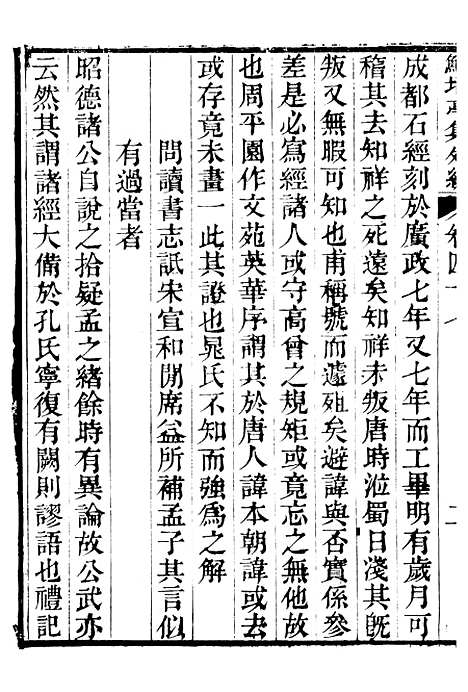 鮚埼亭集外編 卷四十 二
成都石經刻於廣政七年又七年而工畢明有歲月可
稽其去知祥之死遠矣知祥未叛唐時涖蜀日淺其旣
叛又無暇可知也甫稱號而遽殂矣避諱與否實係參
差是必寫經諸人或守高曾之規矩或竟忘之無他故
也周平園作文苑英華序謂其於唐人諱本朝諱或去
或存竟未畫一此其證也晁氏不知而強爲之解
問讀書志詆宋宣和閒席益所補孟子其言似
有過當者
昭德諸公自說之拾疑孟之緒餘時有異論故公武亦
云然其謂諸經大備於孔氏寧復有闕則謬語也禮記